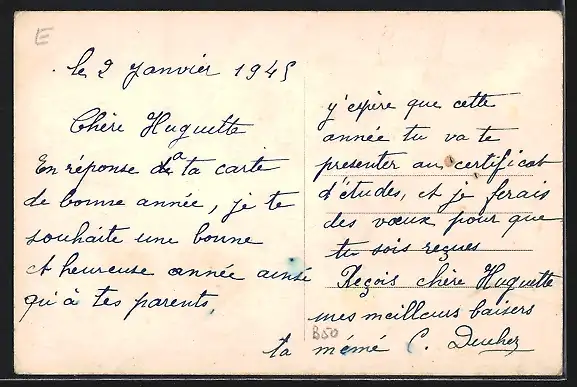 E
le 2 Janvier 1945
Chère Huguette
En réponse a ta carte
de bonne année, je te
souhaite une bonne
et heureuse année ainsi
qu'à tes parents,
y'espère que cette
année tu va te
presenter au certificat
d'études, et je ferais
des vœux pour que
tu sois reçues
Reçois chère Huguette
mes meilleurs baisers
B50
ta mémé C.